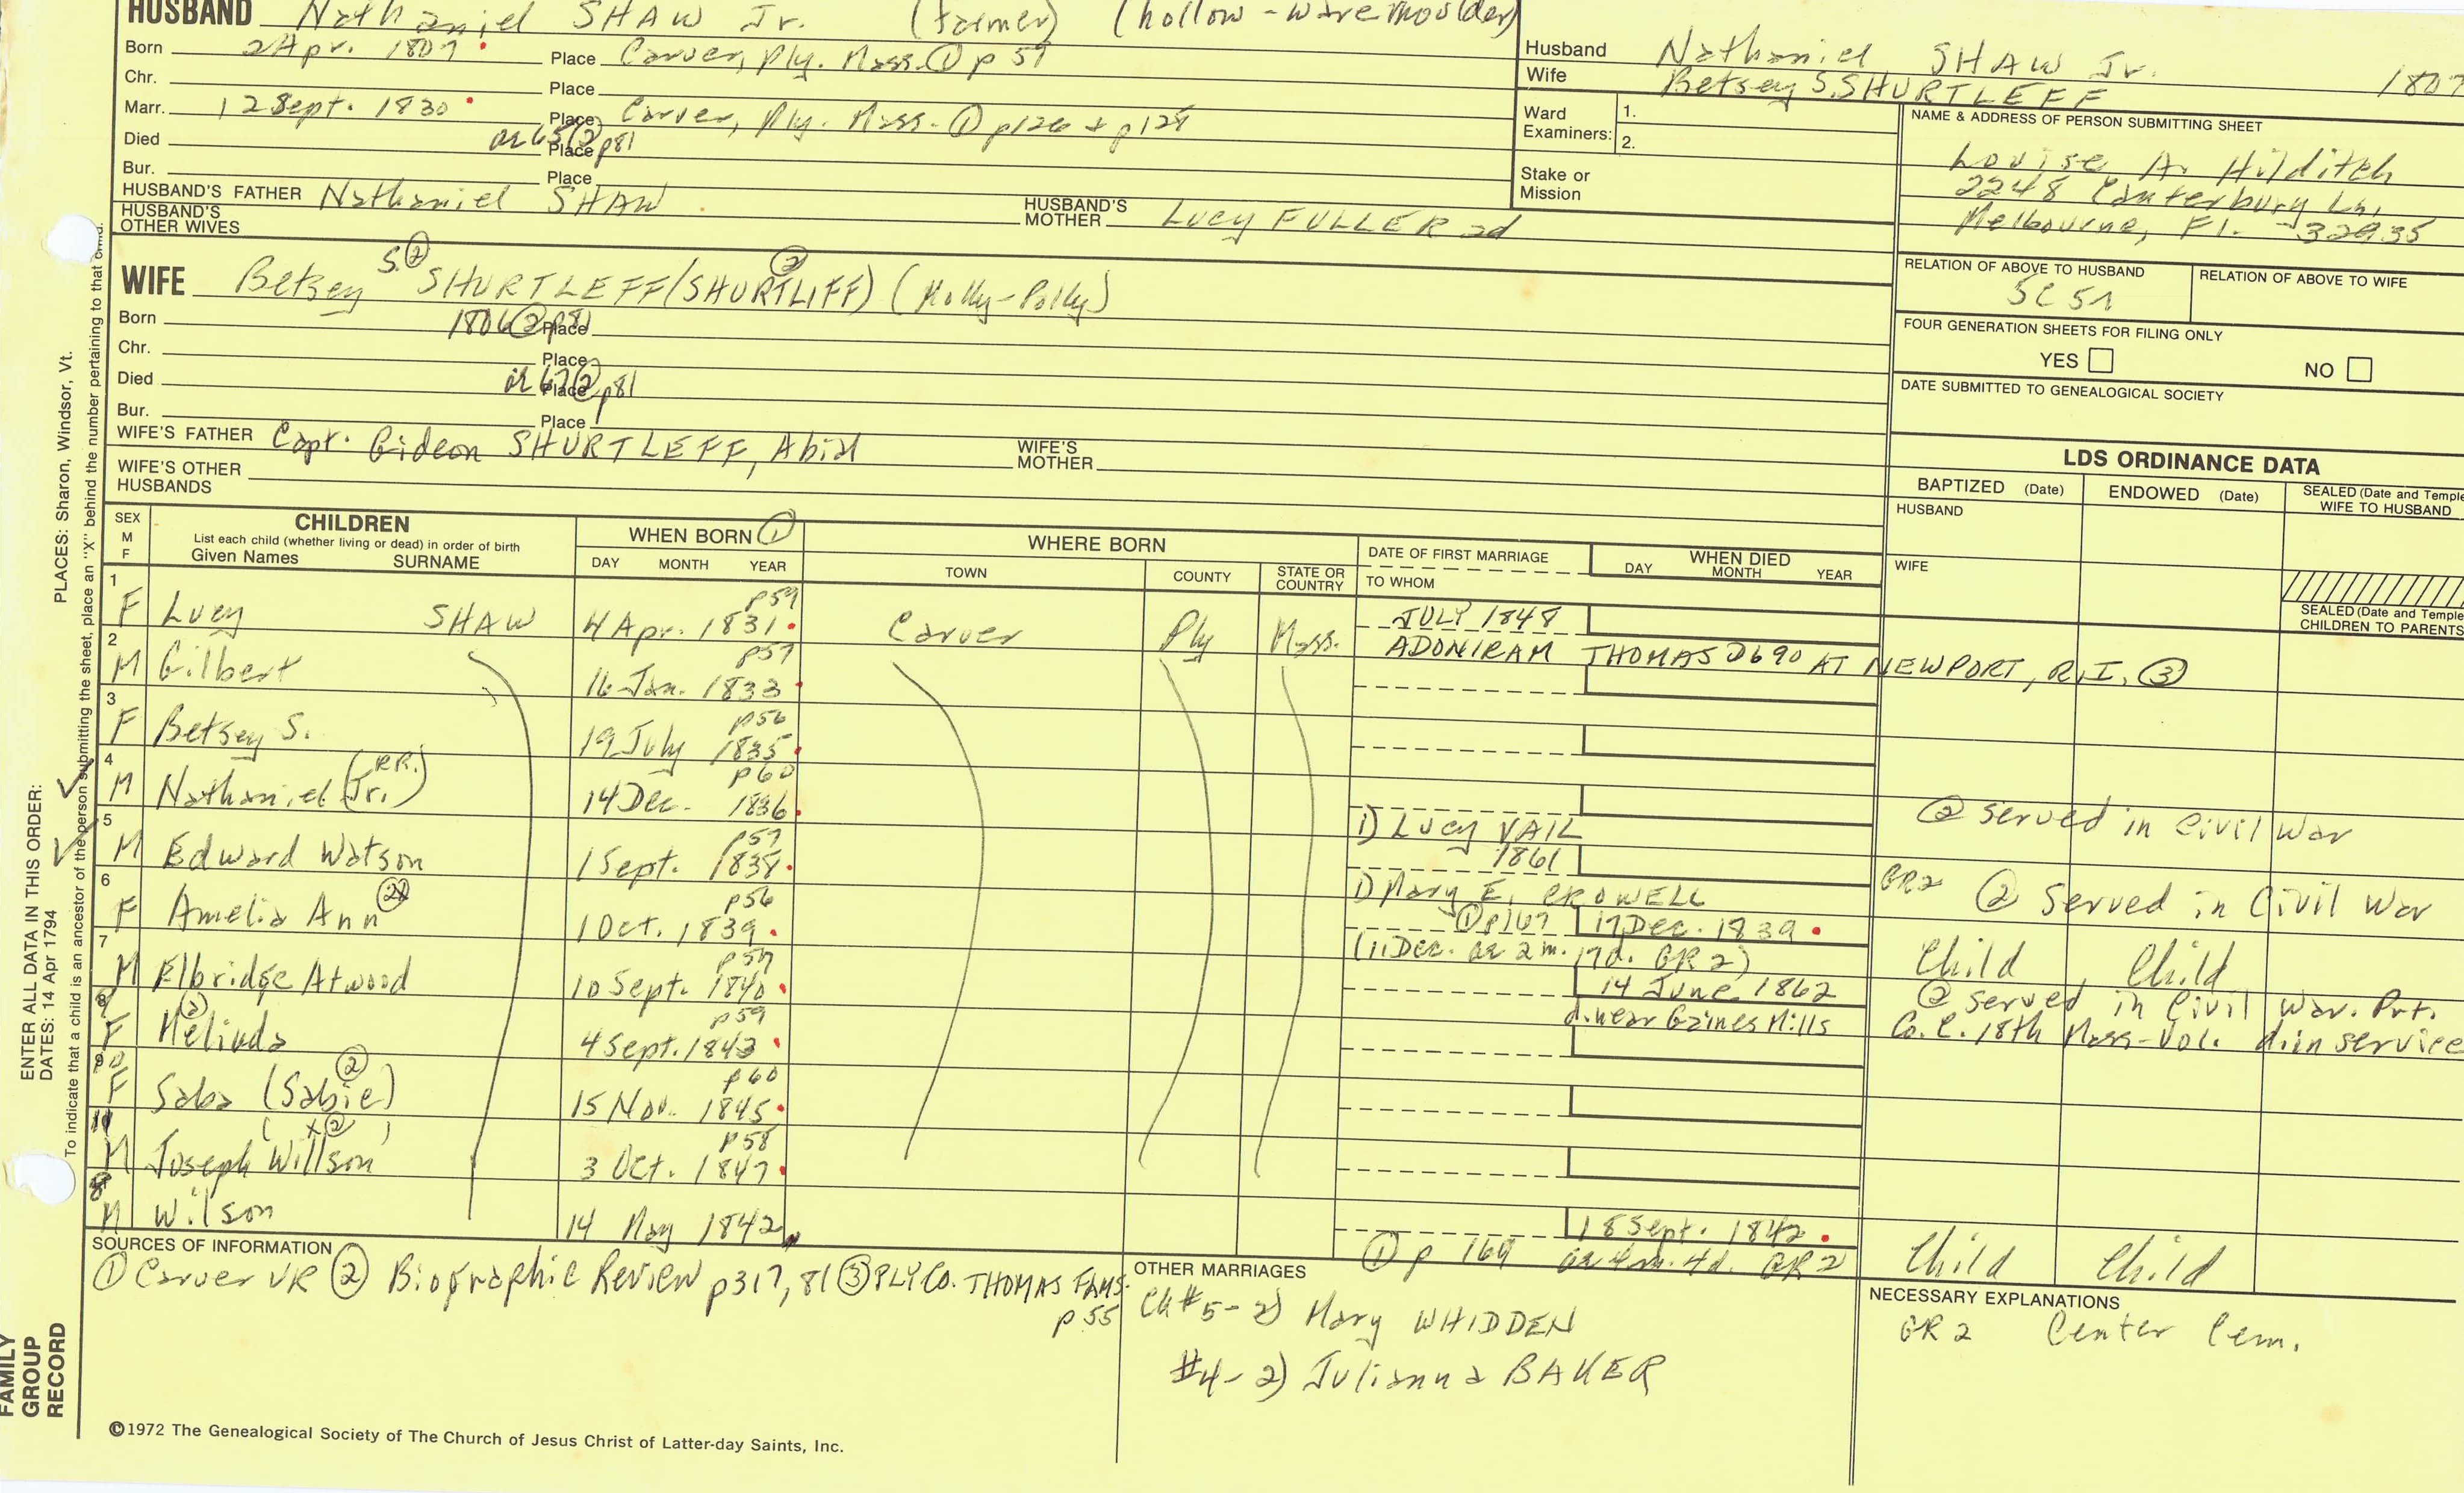 HUSBAND Nathaniel SHAW Jr. (farmer) (hollow-ware moulder)
Born 2 Apr. 1807 Place Carver, Ply. Mass. ① p 59
Chr. Place
Marr. 12 Sept. 1830 Place Carver, Ply. Mass. ① p126 + p128
Died ae 65 ② p81 Place
Bur. Place
HUSBAND'S FATHER Nathaniel SHAW HUSBAND'S MOTHER Lucy FULLER 2d
HUSBAND'S OTHER WIVES
Husband Nathaniel SHAW Jr. 1807
Wife Betsey S. SHURTLEFF
Ward Examiners: 1.
2.
Stake or Mission
NAME & ADDRESS OF PERSON SUBMITTING SHEET
Louise A. Hilditch
2248 Canterbury Ln,
Melbourne, Fl. 32935
RELATION OF ABOVE TO HUSBAND RELATION OF ABOVE TO WIFE
5C 5R
FOUR GENERATION SHEETS FOR FILING ONLY
YES NO
DATE SUBMITTED TO GENEALOGICAL SOCIETY
WIFE Betsey S.② SHURTLEFF/(SHURTLIFF)② (Molly-Polly)
Born 1806 ② p81 Place
Chr. Place
Died ae 67 ② p81 Place
Bur. Place
WIFE'S FATHER Capt. Gideon SHURTLEFF, Abial WIFE'S MOTHER
WIFE'S OTHER HUSBANDS
LDS ORDINANCE DATA
BAPTIZED (Date) ENDOWED (Date) SEALED (Date and Temple) WIFE TO HUSBAND
HUSBAND
WIFE
SEALED (Date and Temple) CHILDREN TO PARENTS
SEX M F CHILDREN List each child (whether living or dead) in order of birth Given Names SURNAME
WHEN BORN ① DAY MONTH YEAR
WHERE BORN TOWN COUNTY STATE OR COUNTRY
DATE OF FIRST MARRIAGE TO WHOM
WHEN DIED DAY MONTH YEAR
1 F Lucy SHAW 4 Apr. 1831 p59 Carver Ply Mass. JULY 1848
ADONIRAM THOMAS D690 AT NEWPORT, R.I. ③
2 M Gilbert 16 Jan. 1833 p57
3 F Betsey S. 19 July 1835 p56
4 M Nathaniel (Jr.) (P.R.) 14 Dec. 1836 p60 1) Lucy VAIL ② served in Civil War
5 M Edward Watson 1 Sept. 1838 p57 1861
1) Mary E. CROWELL GR2 ② Served in Civil War
6 F Amelia Ann ② 1 Oct. 1839 p56 ① p167 17 Dec. 1839
(11 Dec. ae 2 m. 17 d. GR 2) Child Child
7 M Elbridge Atwood 10 Sept. 1840 p57 14 June 1862 ② served in Civil War. Pvt.
d. near Gaines Mills Co. C. 18th Mass. Vol. d. in service
F Melinda ② 4 Sept. 1843 p59
F Saba (Sabie) ② 15 Nov. 1845 p60
M Joseph Willson ( x② ) 3 Oct. 1847 p58
8 M Wilson 14 May 1842 18 Sept. 1842
① p 169 ae 4 m. 4 d. GR 2 Child Child
SOURCES OF INFORMATION
① Carver VR ② Biographic Review p317, 81 ③ PLY CO. THOMAS FAMS.
p 55
OTHER MARRIAGES
Ch #5 - 2) Mary WHIDDEN
#4 - 2) Julianna BAKER
NECESSARY EXPLANATIONS
GR 2 Center Cem.
©1972 The Genealogical Society of The Church of Jesus Christ of Latter-day Saints, Inc.
FAMILY GROUP RECORD
ENTER ALL DATA IN THIS ORDER:
DATES: 14 Apr 1794
PLACES: Sharon, Windsor, Vt.
To indicate that a child is an ancestor of the person submitting the sheet, place an "X" behind the number pertaining to that child.